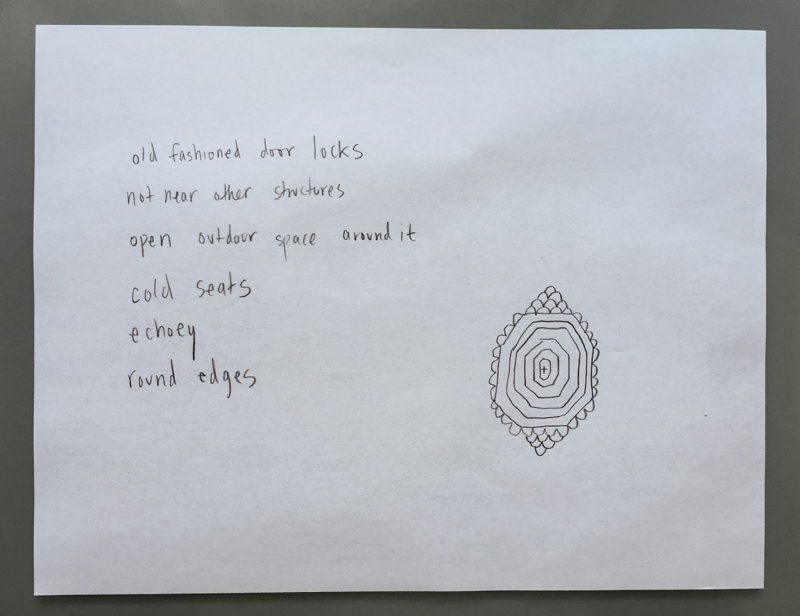 old fashioned door locks
not near other structures
open outdoor space around it
cold seats
echoey
round edges